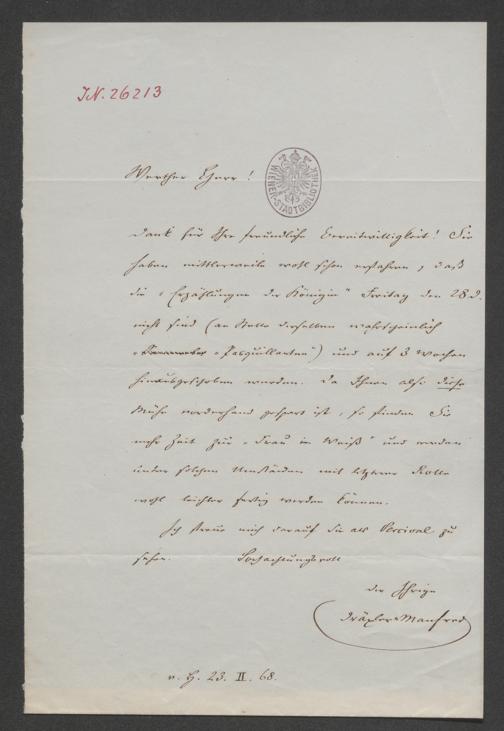 JN. 26213
WIENER-STADTBIBLIOTHEK
Werther Herr!
Dank für Ihre freundliche Bereitwilligkeit! Sie
haben mittlerweile wohl schon erfahren, daß
die „Erzählungen der Königin" Freitag den 28 d.
nicht sind (an Stelle derselben wahrscheinlich
„Pasquillanten") und auf 3 Wochen
hinausgeschoben wurden. Da Ihnen also diese
Mühe vorderhand gespart ist, so finden Sie
mehr Zeit zur „Frau in Weiß" und werden
unter solchen Umständen mit letzterer Rolle
wohl leichter fertig werden können.
Ich freue mich darauf Sie als Percival zu
sehen. Hochachtungsvoll
der Ihrige
Dräxler-Manfred
v. H. 23. II. 68.